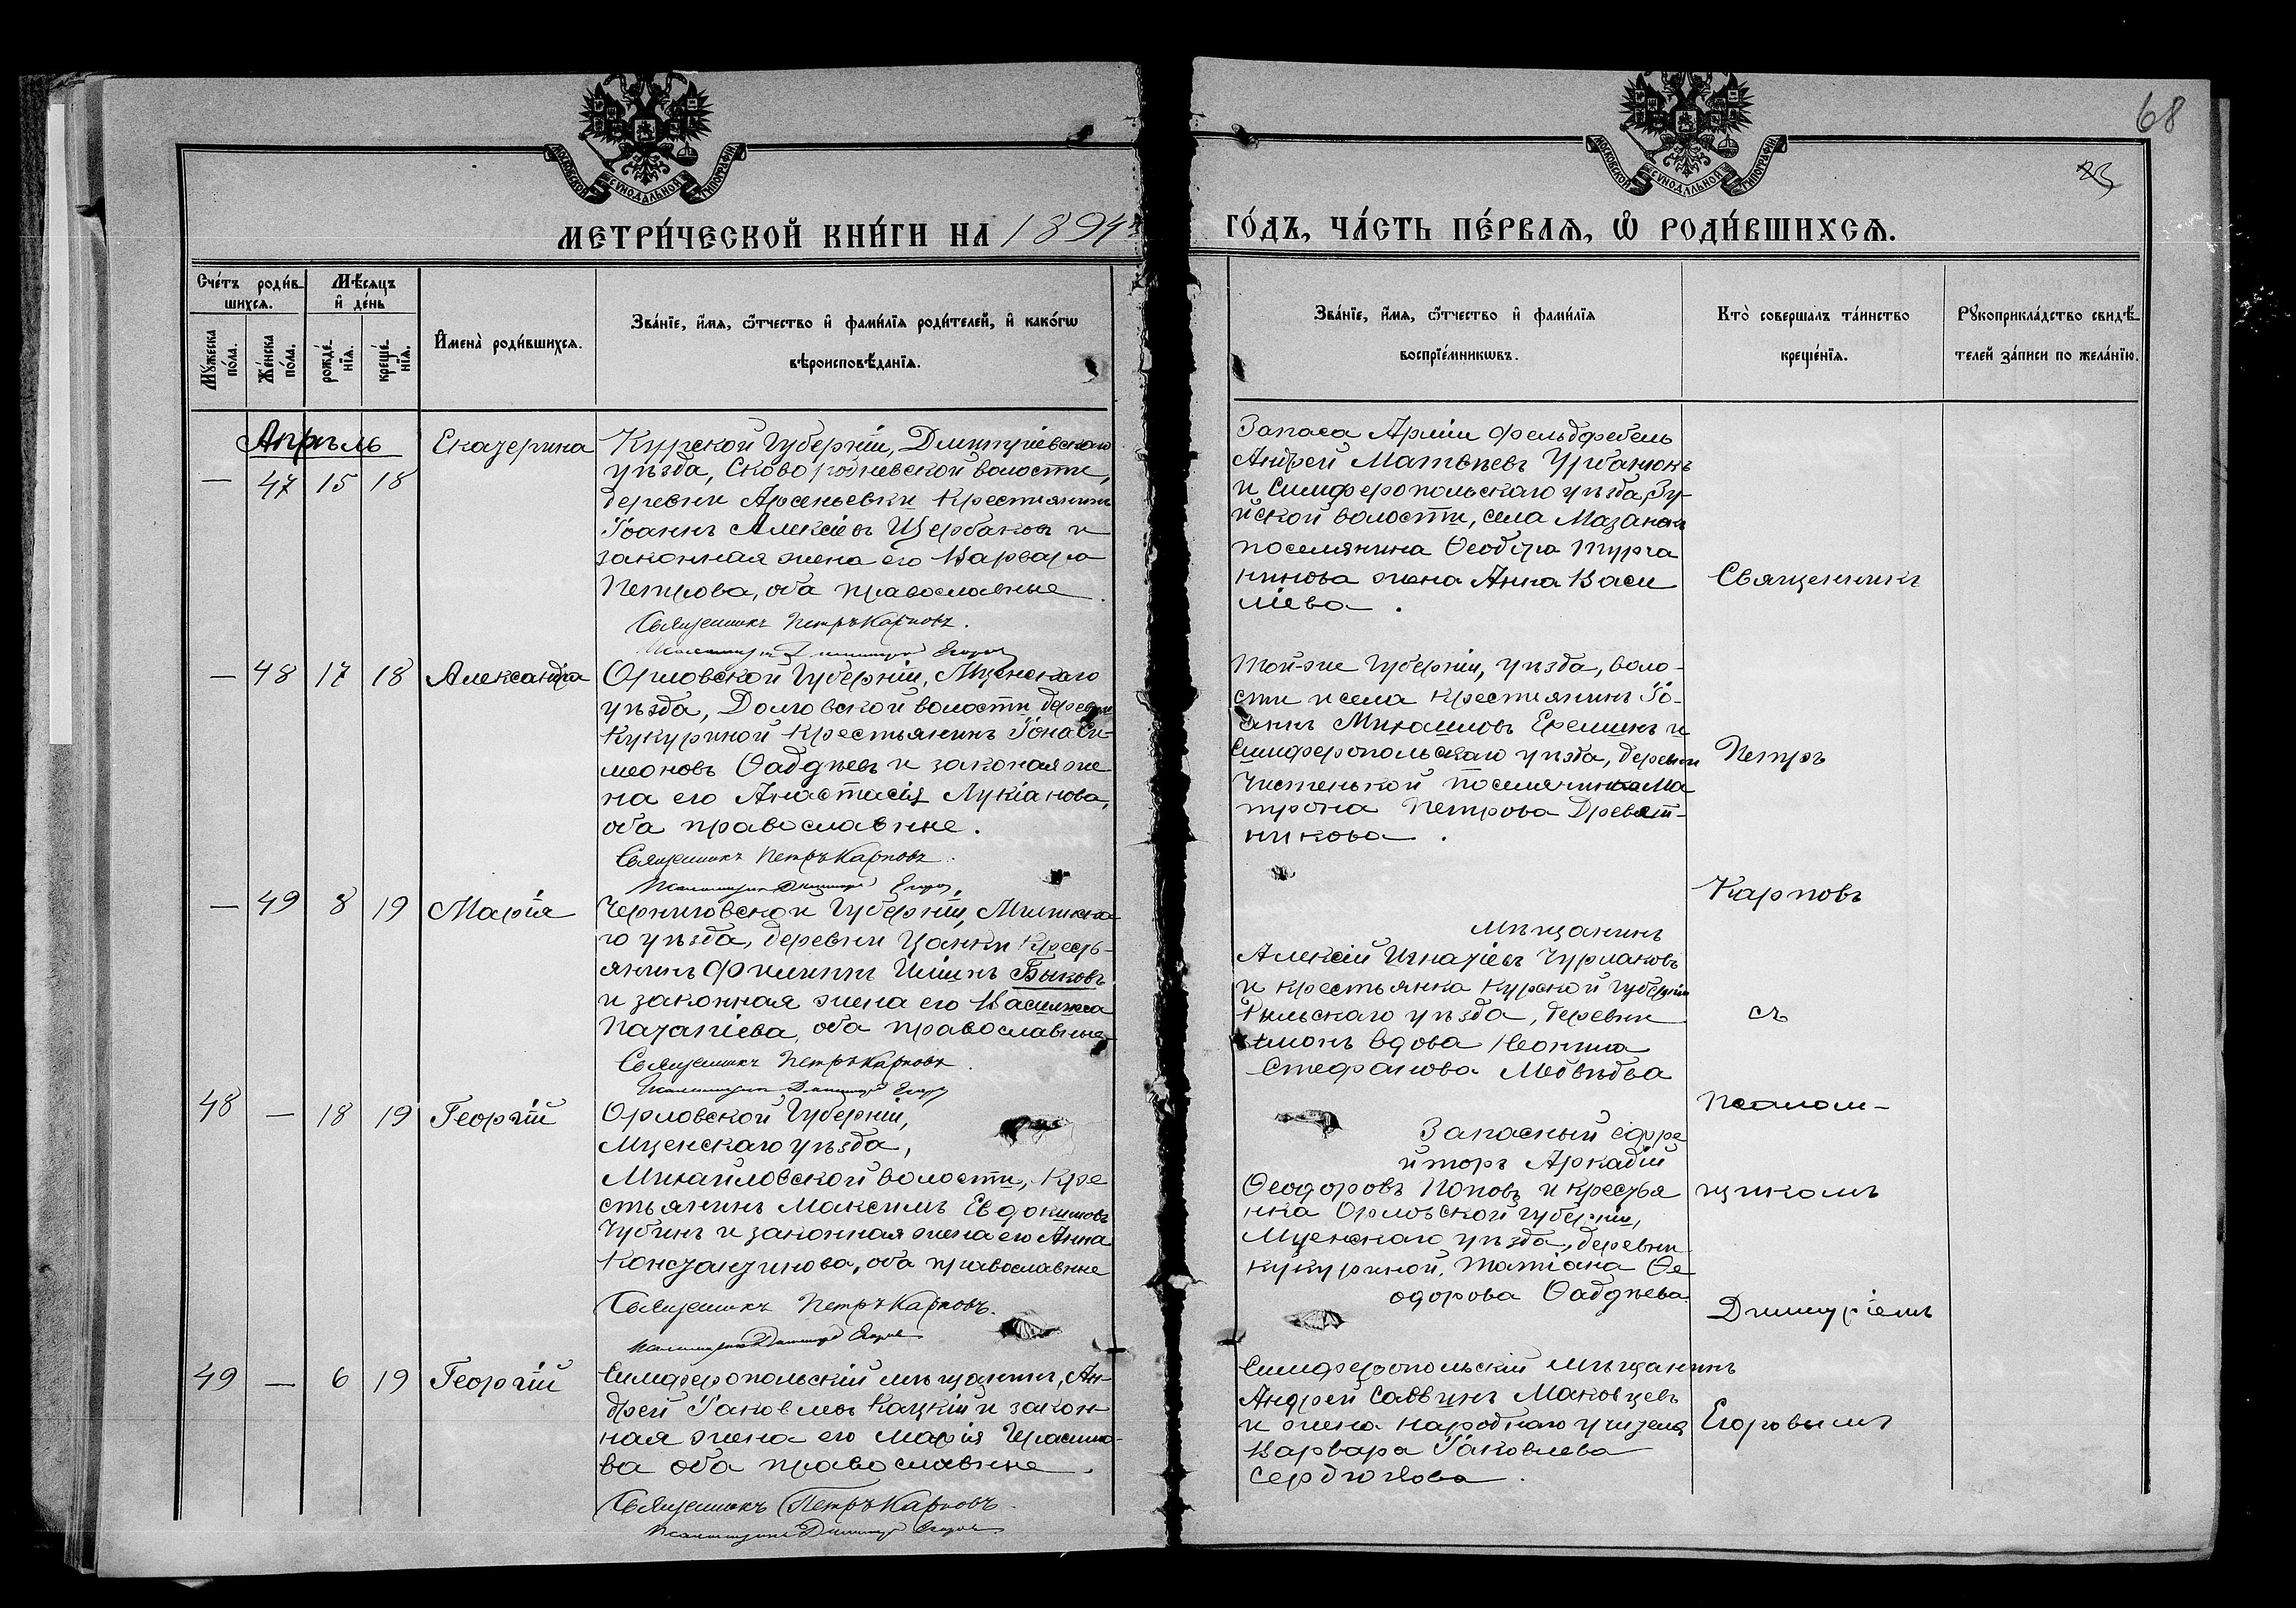 68
МОСКОВСКОЙ СѴНОДАЛЬНОЙ ТИПОГРАФІИ
МОСКОВСКОЙ СѴНОДАЛЬНОЙ ТИПОГРАФІИ
МЕТРИ́ЧЕСКОЙ КНИ́ГИ НА 1894й
ГО́ДЪ, ЧА́СТЬ ПЕ́РВАѦ, Ѡ РОДИ́ВШИХСѦ.
Сче́тъ роди́в-
шихсѧ.
Мѣ́сѧцъ
и҆ де́нь
Мꙋ́жеска по́ла.
Же́нска по́ла.
рожде́-нїѧ.
креще́-нїѧ.
И҆мена̀ роди́вшихсѧ.
Зва́нїе, и҆́мѧ, ѻ҆́тчество и҆ фами́лїѧ роди́телей, и҆ како́гѡ
вѣроисповѣ́данїѧ.
Зва́нїе, и҆́мѧ, ѻ҆́тчество и҆ фами́лїѧ
воспрїе́мникѡвъ.
Кто̀ соверша́лъ та́инство
креще́нїѧ.
Рꙋкоприкла́дство свидѣ́-
телей за́писи по жела́нїю.
Апрѣль
— 47 15 18
Екатерина
Курской Губерніи, Дмитріевскаго
уѣзда, Сковородневской волости,
деревни Арсеньевки крестьянинъ
Іоаннъ Алексіевъ Щербаковъ и
законная жена его Варвара
Петрова, оба православные.
Священникъ Петръ Карповъ.
Псаломщикъ Димитрій Егоровъ
Запаса Арміи Фельдфебель
Андрей Матвѣевъ Урбанюкъ
и Симферопольскаго уѣзда, Зу-
йской волости, села Мазанки
поселянина Ѳеодора Турча
нинова жена Анна Васи
ліева.
— 48 17 18 Александра
Орловской Губерніи, Мценскаго
уѣзда, Долговской волости, деревни
Кукуриной крестьянинъ Іона Си-
меоновъ Ѳаддѣевъ и законая же
на его Анастасія Лукіанова,
оба православные.
Священникъ Петръ Карповъ.
Псаломщикъ Димитрій Егоровъ.
Той-же Губерніи, уѣзда, воло-
сти и села крестьянинъ Іо-
аннъ Михаиловъ Еремшнъ и
Симферопольскаго уѣзда, деревни
Чистенькой поселянина Ма
трона Петрова Древет-
никова.
— 49 8 19 Марія
Черниговской Губерніи, Мглинска
го уѣзда, деревни Цанки кресть-
янинъ Филиппъ Иліинъ Быковъ
и законная жена его Василиса
Паталіева, оба православные
Священникъ Петръ Карповъ.
Псаломщикъ Димитрій Егоровъ
Мѣщанинъ
Алексій Игнатіевъ Чурлаковъ
и крестьянка Курской Губерніи
Рыльскаго уѣзда, деревни
вдова Неонила
Стефанова Медвѣдева
48 — 18 19 Георгій
Орловской Губерніи,
Мценскаго уѣзда,
Михайловской волости, кре
стьянинъ Максимъ Евдокимовъ
Чубинъ и законная жена его Анна
Константинова, оба православные
Священникъ Петръ Карповъ.
Псаломщикъ Димитрій Егоровъ
Запасный ефре
йторъ Аркадій
Ѳеодоровъ Поповъ и крестья
нка Орловской Губерніи,
Мценскаго уѣзда, деревни
Кукуриной, Татіана Ѳе
одорова Ѳаддѣева.
49 — 6 19 Георгій
Симферопольскій мѣщанинъ, Ан-
дрей Іаковлевъ Кацкій и закон-
ная жена его Марія Герасимо-
ва оба православные.
Священникъ Петръ Карповъ.
Псаломщикъ Димитрій Егоровъ
Симферопольскій мѣщанинъ
Андрей Саввинъ Маковцевъ
и жена народнаго учителя
Варвара Іаковлева
Сердюкова.
Священникъ
Петръ
Карповъ
съ
Псалом-
щикомъ
Димитріемъ
Егоровымъ